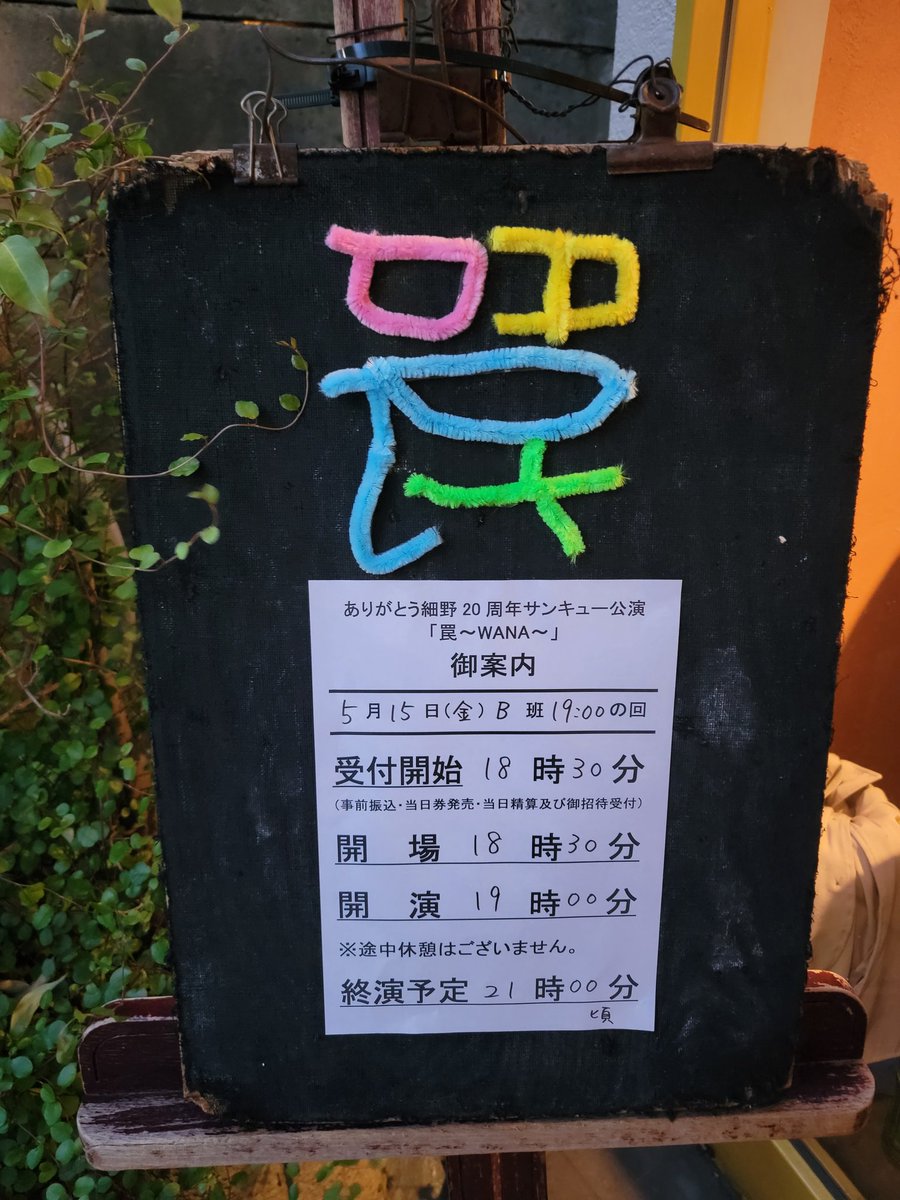 罠
ありがとう細野20周年サンキュー公演
「罠～WANA～」
御案内
5月15日(金)B班19:00の回
受付開始 18時30分
(事前振込・当日券発売・当日精算及び御招待受付)
開場 18時30分
開演 19時00分
※途中休憩はございません。
終演予定 21時00分
頃